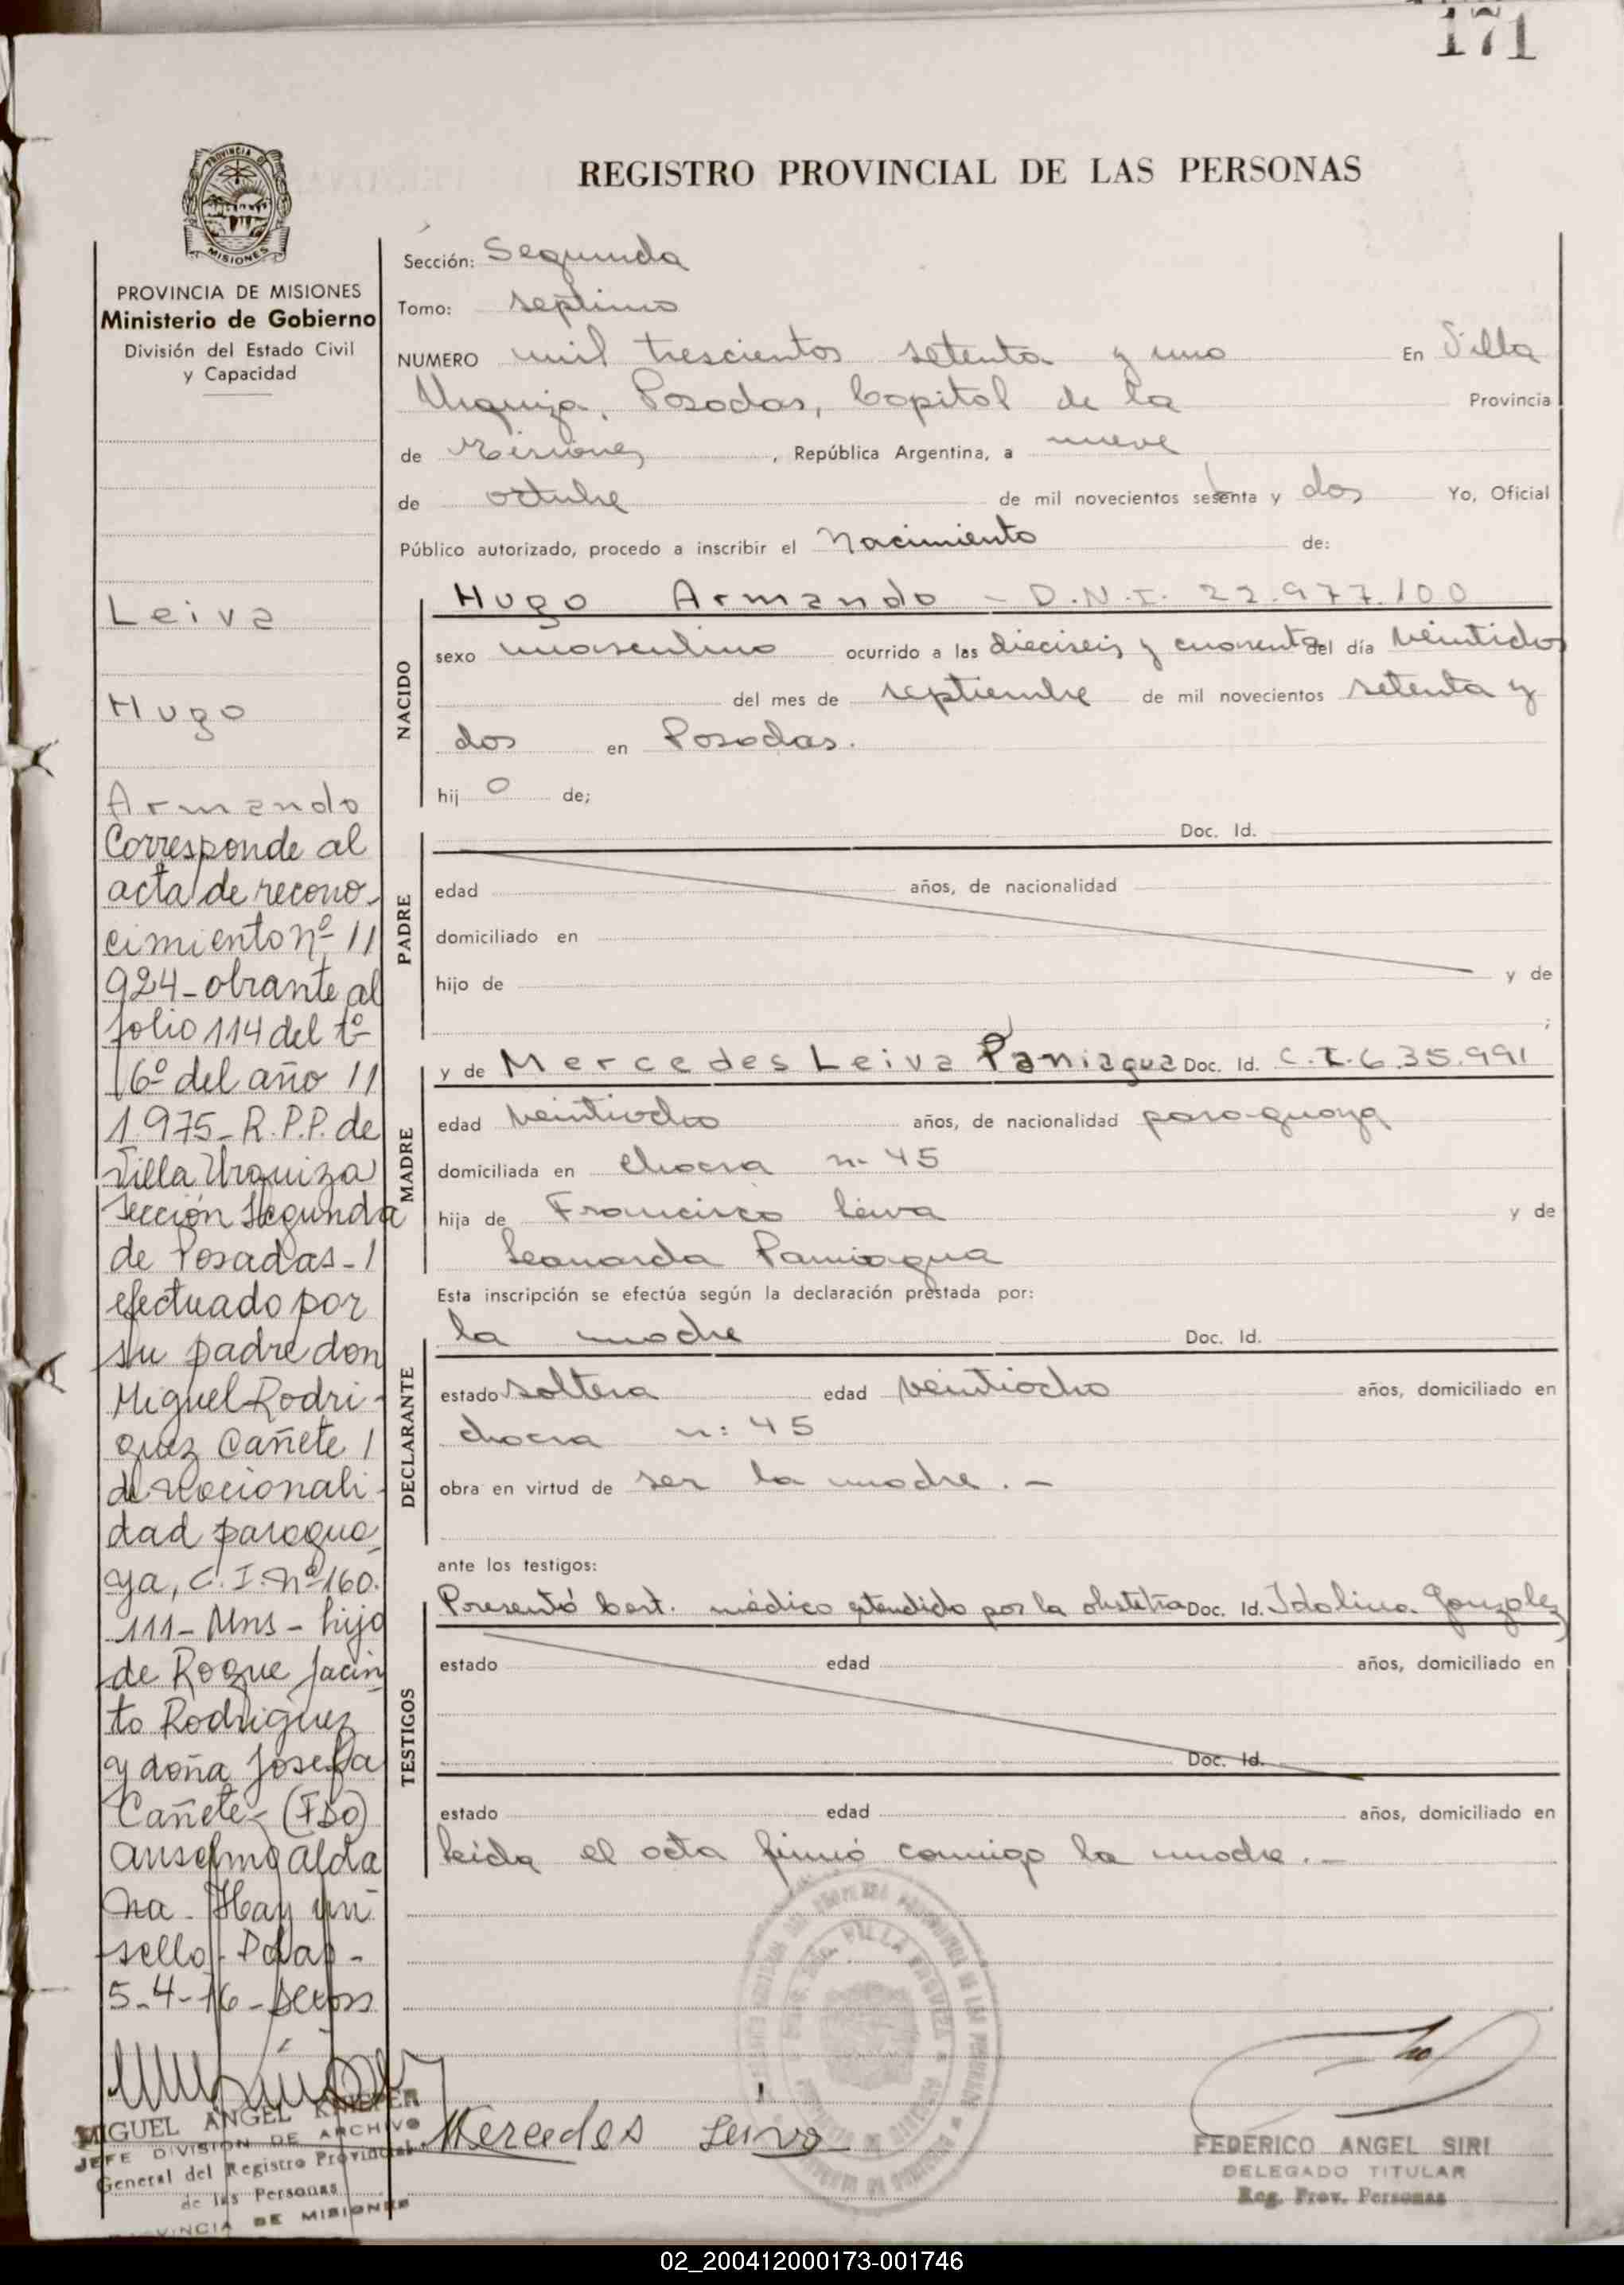 171
REGISTRO PROVINCIAL DE LAS PERSONAS
PROVINCIA DE MISIONES
Ministerio de Gobierno
División del Estado Civil
y Capacidad
Leiva
Hugo
Armando
Corresponde al
acta de recono-
cimiento nº 11
924 - obrante al
folio 114 del tº
6º del año 11
1.975 - R.P.P. de
Villa Urquiza
Sección Segunda
de Posadas - /
efectuado por
su padre don
Miguel Rodri-
guez Cañete /
de nacionali-
dad paragua-
ya, C.I. nº 160.
111 - Mns - hijo
de Roque Jacin
to Rodriguez
y doña Josefa
Cañete - (FDO)
Anselmo Alda
na - Hay un
sello - Pdas -
5-4-76 -
MIGUEL ANGEL KNIEPER
JEFE DIVISION DE ARCHIVO
General del Registro Provincial
de las Personas
PROVINCIA DE MISIONES
Sección: Segunda
Tomo: septimo
NUMERO mil trescientos setenta y uno En Villa
Urquiza, Posadas, Capital de la Provincia
de Misiones, República Argentina, a nueve
de octubre de mil novecientos setenta y dos Yo, Oficial
Público autorizado, procedo a inscribir el Nacimiento de:
NACIDO
Hugo Armando - D.N.I. 22.977.100
sexo masculino ocurrido a las dieciseis y cuarenta del día veintidos
del mes de septiembre de mil novecientos setenta y
dos en Posadas.
hij o de;
PADRE
Doc. Id.
edad años, de nacionalidad
domiciliado en
hijo de y de
;
MADRE
y de Mercedes Leiva Paniagua Doc. Id. C.I. 635.991
edad veintiocho años, de nacionalidad paraguaya
domiciliada en chacra n- 45
hija de Francisco Leiva y de
Leonarda Paniagua
Esta inscripción se efectúa según la declaración prestada por:
DECLARANTE
la madre Doc. Id.
estado soltera edad veintiocho años, domiciliado en
chacra n: 45
obra en virtud de ser la madre. -
ante los testigos:
TESTIGOS
Presentó Cert. médico extendido por la obstetra Doc. Id. Idolina Gonzalez
estado edad años, domiciliado en
Doc. Id.
estado edad años, domiciliado en
leida el acta firmó conmigo la madre. -
Mercedes Leiva
FEDERICO ANGEL SIRI
DELEGADO TITULAR
Reg. Prov. Personas
02_200412000173-001746